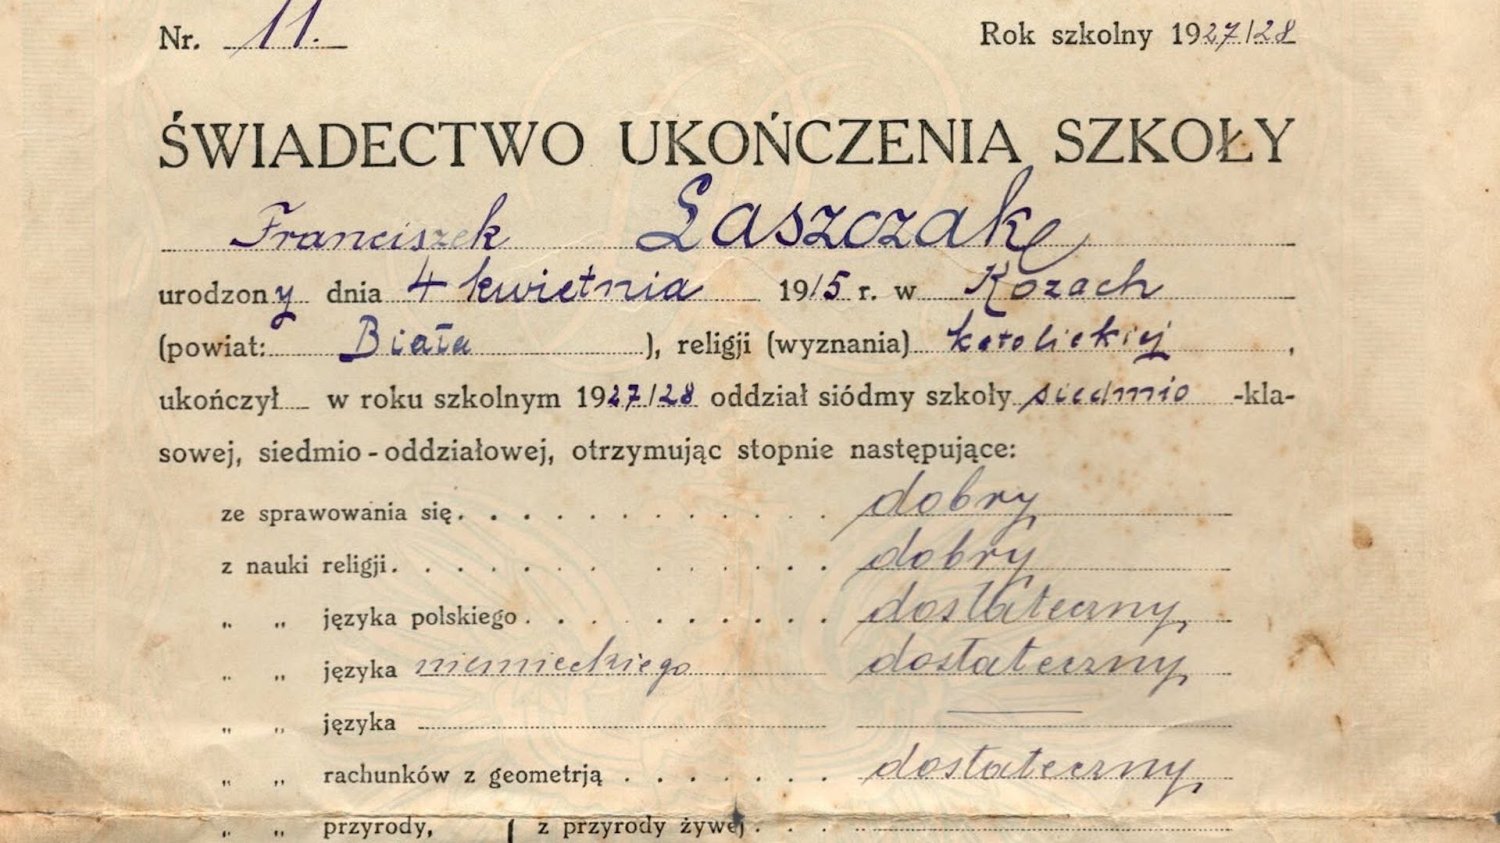 Nr. 11. Rok szkolny 1927/28
ŚWIADECTWO UKOŃCZENIA SZKOŁY
Franciszek Łaszczak
urodzony dnia 4 kwietnia 1915 r. w Kozach
(powiat: Biała ), religji (wyznania) katolickiej,
ukończył w roku szkolnym 1927/28 oddział siódmy szkoły siedmio -kla-
sowej, siedmio-oddziałowej, otrzymując stopnie następujące:
ze sprawowania się. . . . . . . . . . . dobry
z nauki religji. . . . . . . . . . . dobry
„ „ języka polskiego . . . . . . . . . dostateczny
„ „ języka niemieckiego dostateczny
„ „ języka —
„ „ rachunków z geometrją . . . . . . . dostateczny
„ „ przyrody, { z przyrody żywej . . .